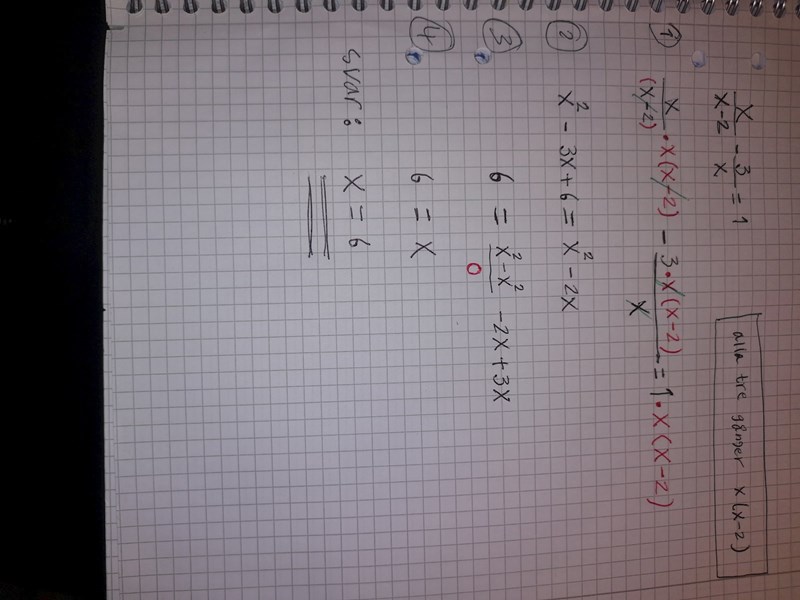 x/(x-2) - 3/x = 1
alla tre gånger x(x-2)
① x/(x-2) • x(x-2) - 3•x(x-2)/x = 1 • x(x-2)
② x² - 3x + 6 = x² - 2x
③ 6 = x² - x² - 2x + 3x
0
④ 6 = x
svar: x = 6